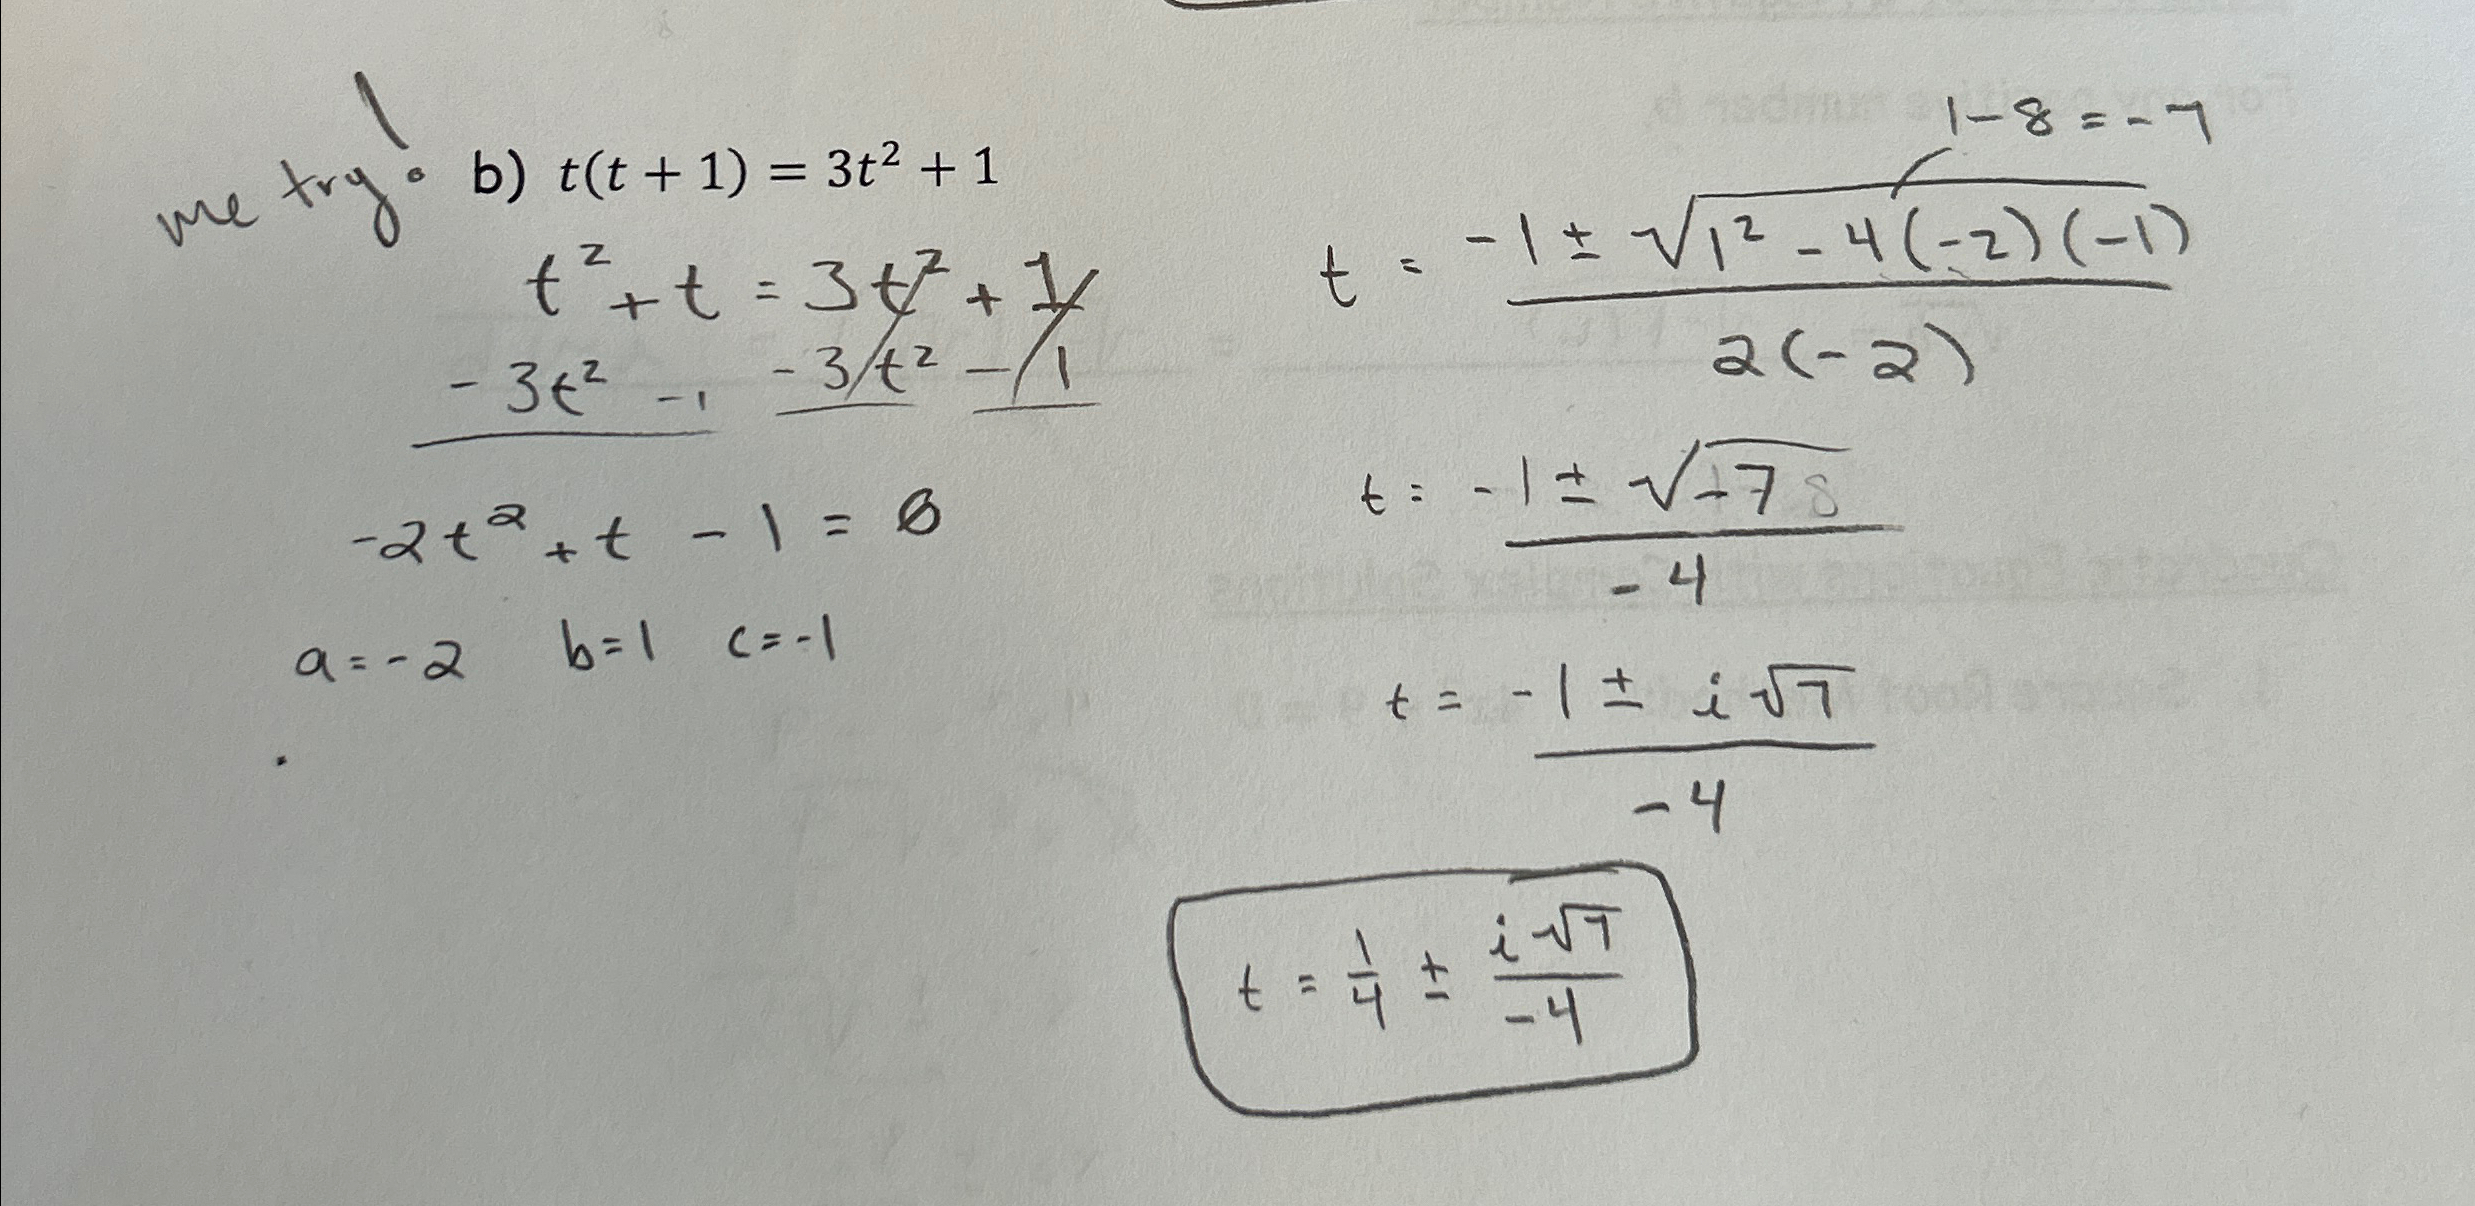 me try!
b) t(t + 1) = 3t² + 1
t² + t = 3t² + 1
- 3t² - 1 - 3t² - 1
-2t² + t - 1 = 0
a = -2 b = 1 c = -1
1 - 8 = -7
t = -1 ± √1² - 4(-2)(-1)
2(-2)
t = -1 ± √-7
-4
t = -1 ± i√7
-4
t = 1/4 ± i√7/-4